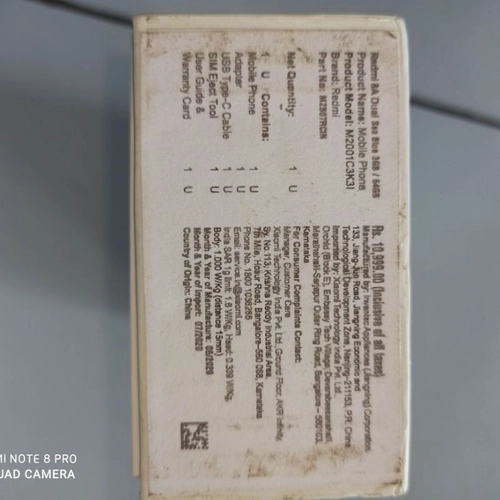 Redmi 8A Dual Sea Blue 3GB / 64GB
Product Name: Mobile Phone
Product Model: M2001C3K3I
Brand: Redmi
Part No:
Net Quantity: 1 U
1 U Contains:
Mobile Phone 1 U
Adapter 1 U
USB Type-C Cable 1 U
SIM Eject Tool 1 U
User Guide &
Warranty Card 1 U
Rs. 10,999.00 (Inclusive of all taxes)
Manufactured by: Inventec Appliances (Jiangning) Corporation
133, Jiang-Jun Road, Jiangning Economic and
Technological Development Zone, Nanjing-211153, P.R. China
Imported by: Xiaomi Technology India Pvt. Ltd
Orchid (Block E), Embassy Tech Village, Devarabeesanahalli,
Marathahalli-Sarjapur Outer Ring Road, Bangalore - 560103,
Karnataka
For Consumer Complaints Contact:
Manager, Customer Care
Xiaomi Technology India Pvt. Ltd. Ground Floor, AKR Infinity,
Sy. No 113, Krishna Reddy Industrial Area,
7th Mile, Hosur Road, Bangalore-560 068, Karnataka
Phone No. 1800 1036286
Email: service.in@xiaomi.com
India SAR 1g limit: 1.6 W/Kg, Head: 0.339 W/Kg,
Body: 1.000 W/Kg (distance 15mm)
Month & Year of Manufacture: 06/2020
Month & Year of Import: 07/2020
Country of Origin: China
MI NOTE 8 PRO
QUAD CAMERA